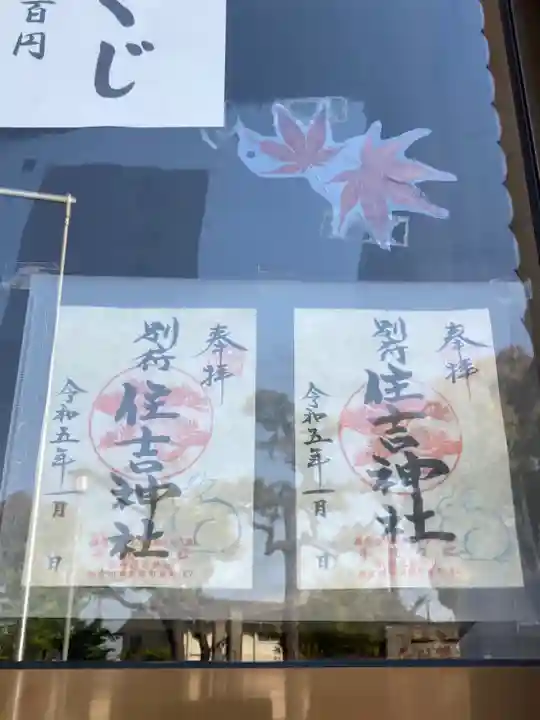 くじ
百円
奉拝
別府
住吉神社
令和五年一月 日
奉拝
別府
住吉神社
令和五年一月 日